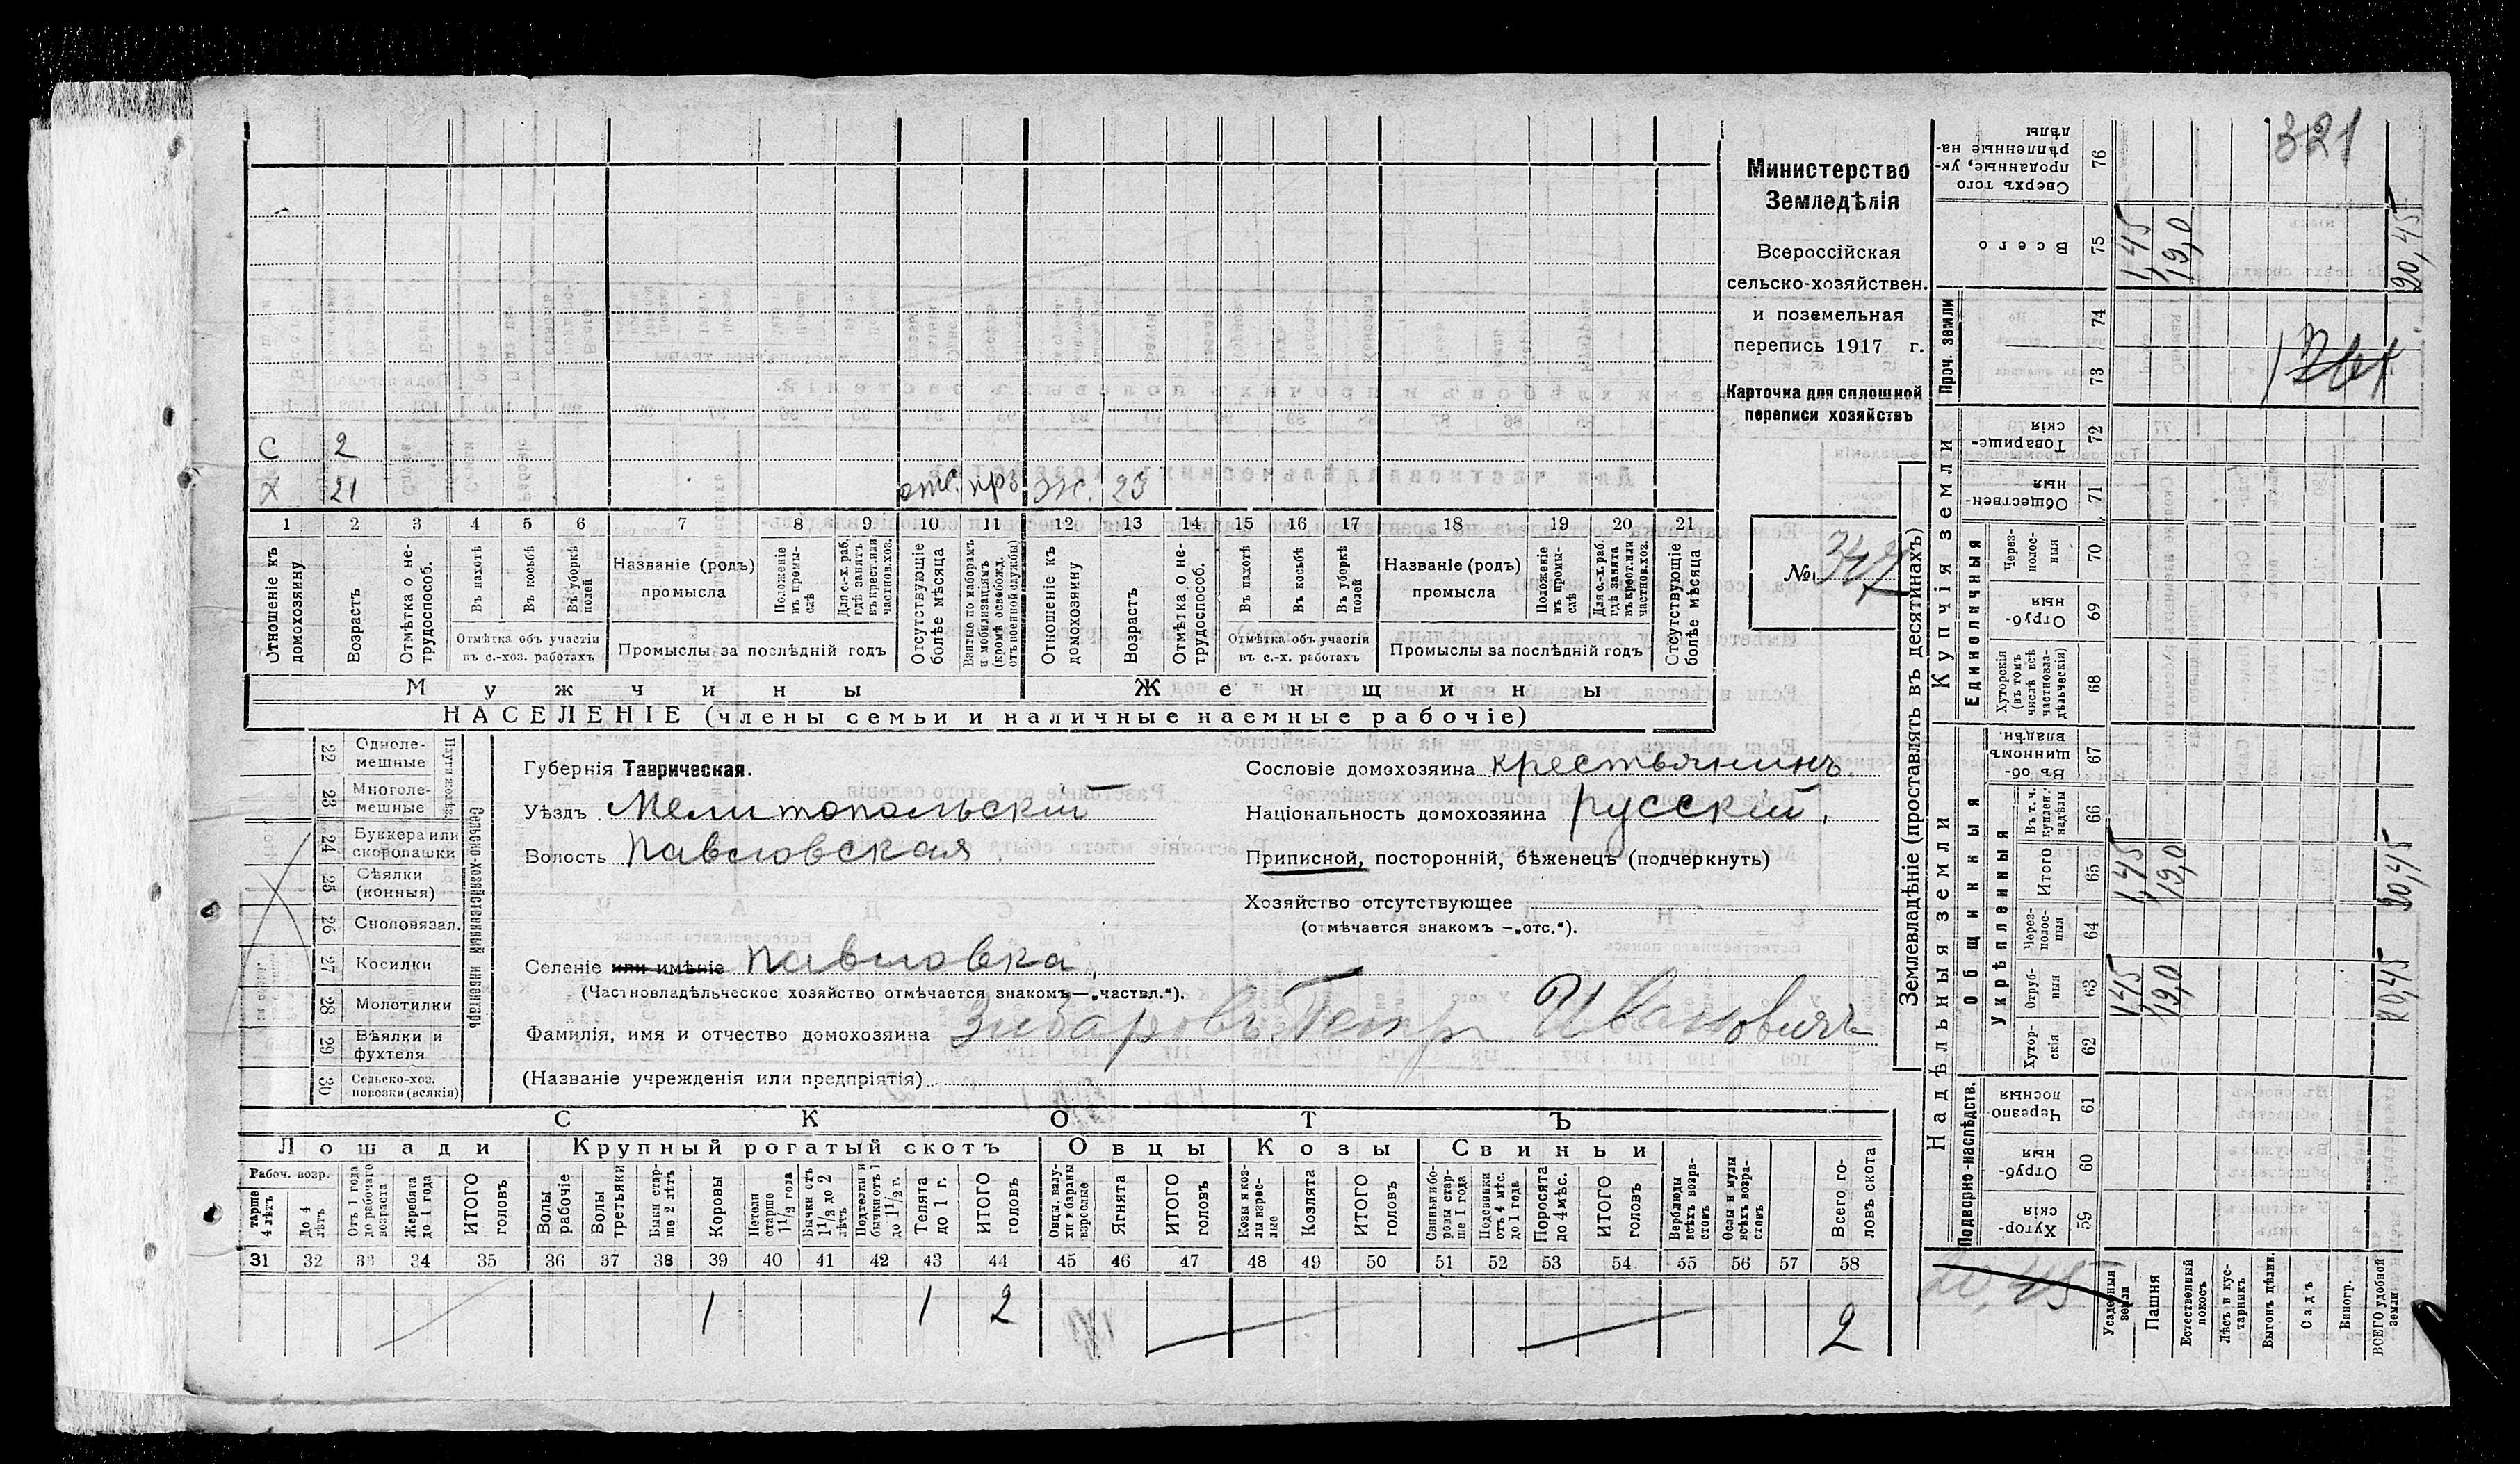 321
Министерство
Земледѣлія
Всероссійская
сельско-хозяйствен.
и поземельная
перепись 1917 г.
Карточка для сплошной
переписи хозяйствъ
№
С 2
Х 21 отс. ж. 23
1 2 3 4 5 6 7 8 9 10 11 12 13 14 15 16 17 18 19 20 21
Отношеніе къ домохозяину
Возрастъ
Отмѣтка о не-трудоспособ.
Въ пахотѣ
Въ косьбѣ
Въ уборкѣ полей
Отмѣтка объ участіи въ с.-хоз. работахъ
Названіе (родъ) промысла
Положеніе въ промы-слѣ
Для с.-х. раб. гдѣ занятъ въ крест. или частнов. хоз.
Промыслы за послѣдній годъ
Отсутствующіе болѣе мѣсяца
Взятые по наборамъ и мобилизаціямъ (кромѣ освобожд. отъ военной службы)
Отношеніе къ домохозяину
Возрастъ
Отмѣтка о не-трудоспособ.
Въ пахотѣ
Въ косьбѣ
Въ уборкѣ полей
Отмѣтка объ участіи въ с.-х. работахъ
Названіе (родъ) промысла
Положеніе въ промы-слѣ
Для с.-х. раб. гдѣ занята въ крест. или частнов. хоз.
Промыслы за послѣдній годъ
Отсутствующіе болѣе мѣсяца
Мужчины Женщины
НАСЕЛЕНІЕ (члены семьи и наличные наемные рабочіе)
Сельско-хозяйственный инвентарь
22 Одноле-мешные
23 Многоле-мешные
24 Буккера или скоропашки
25 Сѣялки (конныя)
26 Сноповязал.
27 Косилки
28 Молотилки
29 Вѣялки и фухтеля
30 Сельско-хоз. повозки (всякія)
Губернія Таврическая.
Уѣздъ Мелитопольскій
Волость Павловская
Селеніе или имѣніе Павловка.
(Частновладѣльческое хозяйство отмѣчается знакомъ—„частвл.“).
Фамилія, имя и отчество домохозяина Зибаровъ Петр Ивановичъ
(Названіе учрежденія или предпріятія)
Сословіе домохозяина крестьянинъ
Національность домохозяина русскій.
Приписной, посторонній, бѣженецъ (подчеркнуть)
Хозяйство отсутствующее
(отмѣчается знакомъ —„отс.“).
СКОТЪ
Лошади Крупный рогатый скотъ Овцы Козы Свиньи
Рабоч. возр.
тарше 4 лѣтъ
До 4 лѣтъ
Отъ 1 года до рабочаго возраста
Жеребята до 1 года
ИТОГО головъ
Волы рабочіе
Волы третьяки
Быки стар-ше 2 лѣтъ
Коровы
Нетели старше 1 1/2 года
Бычки отъ 1 1/2 до 2 лѣтъ
Подтелки и бычки отъ 1 до 1 1/2 г.
Телята до 1 г.
ИТОГО головъ
Овцы, валу-хи и бараны взрослые
Ягнята
ИТОГО головъ
Козы и коз-лы взрос-лые
Козлята
ИТОГО головъ
Свиньи и бо-ровы стар-ше 1 года
Подсвинки отъ 4 мѣс. до 1 года
Поросята до 4 мѣс.
ИТОГО головъ
Верблюды всѣхъ возра-стовъ
Ослы и мулы всѣхъ возра-стовъ
Всего го-ловъ скота
31 32 33 34 35 36 37 38 39 40 41 42 43 44 45 46 47 48 49 50 51 52 53 54 55 56 57 58
1 1 2 2
Землевладѣніе (проставлять въ десятинахъ)
Надѣльныя земли
Купчія земли
Проч. земли
Подворно-наслѣдств.
Общинныя
Укрѣпленныя
Единоличныя
Хутор-скія 59
Отруб-ныя 60
Черезпо-лосныя 61
Хутор-скія 62
Отруб-ныя 63
Через-полос-ныя 64
Итого 65
Въ т. ч. куплен. надѣлы 66
Въ об-щинномъ владѣн. 67
Хуторскія (въ томъ числѣ всѣ частновла-дѣльческія) 68
Отруб-ныя 69
Через-полос-ныя 70
Обществен-ныя 71
Товарище-скія 72
73
74
Всего 75
Сверхъ того проданные, ук-рѣпленные на-дѣлы 76
Усадебныя земли
Пашня
Естественный покосъ
Лѣсъ и кус-тарникъ
Выгонъ дѣлим.
Садъ
Виногр.
ВСЕГО удобной земли
1,45 19,0 20,45
1,45 19,0 20,45
1,45 19,0 20,45
20,45